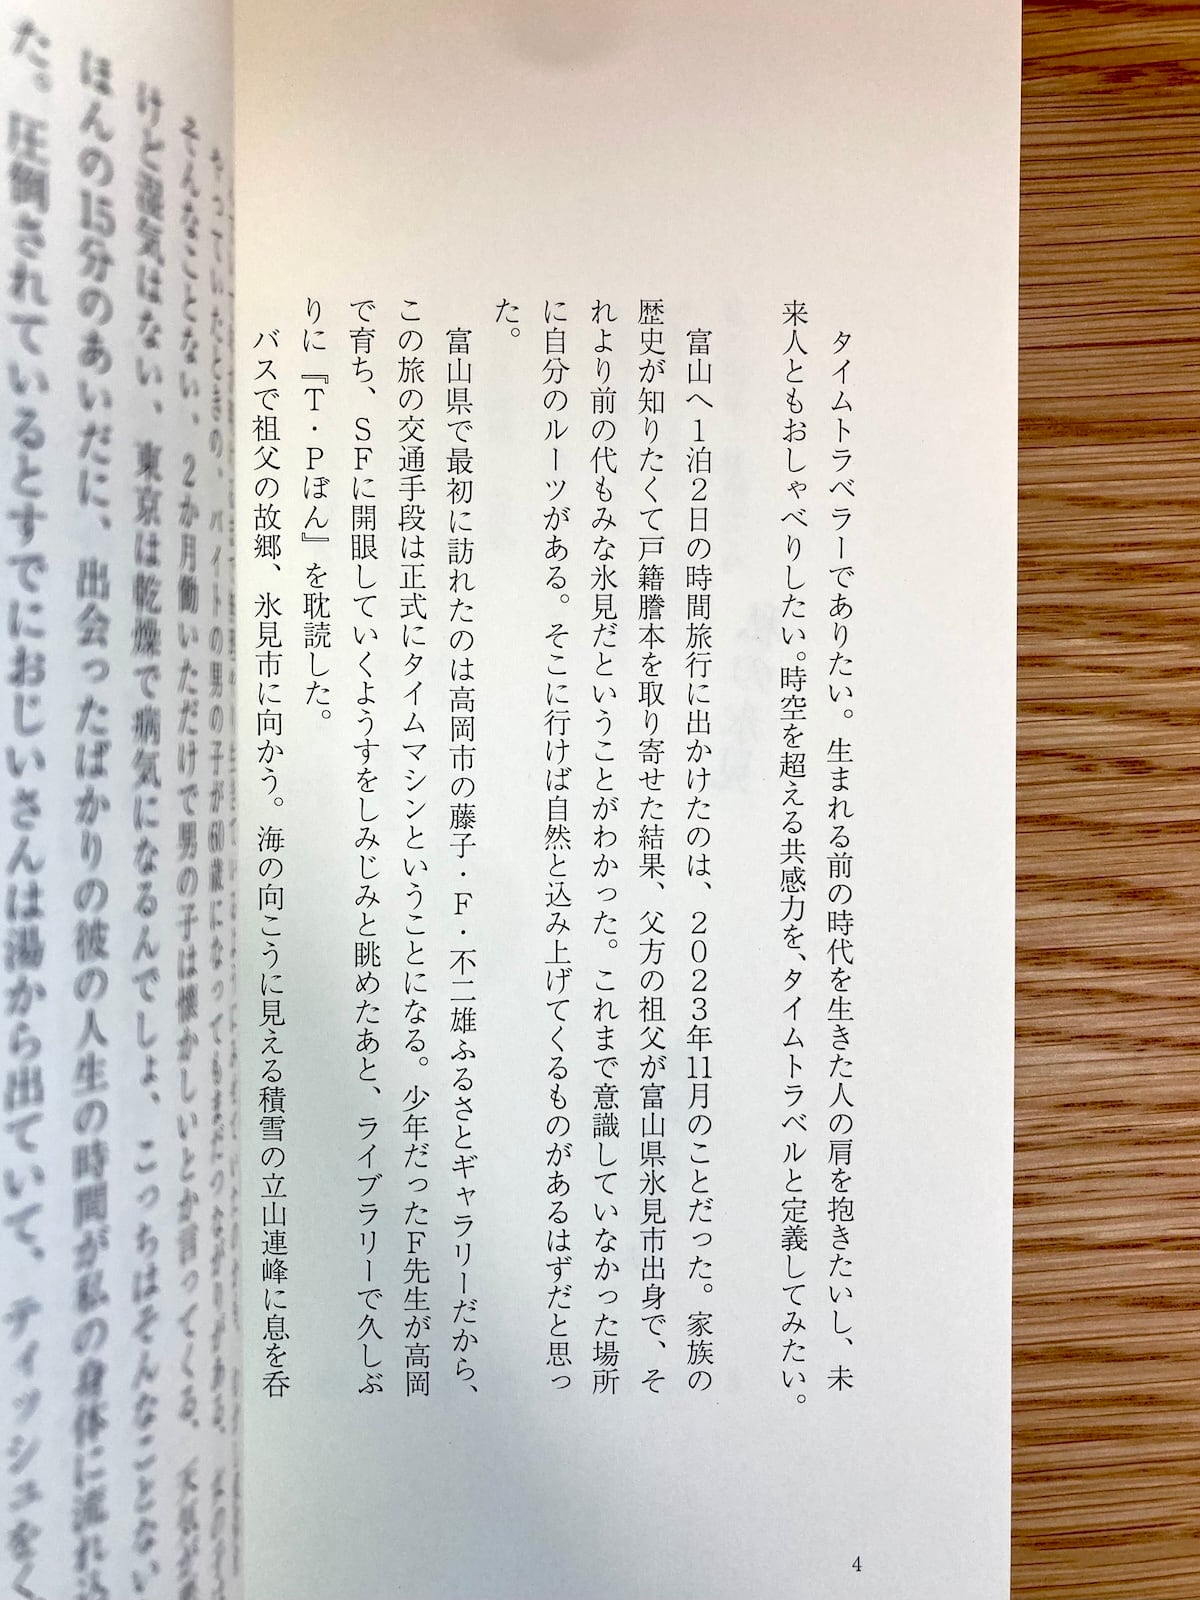 タイムトラベラーでありたい。生まれる前の時代を生きた人の肩を抱きたいし、未
来人ともおしゃべりしたい。時空を超える共感力を、タイムトラベルと定義してみたい。
富山へ1泊2日の時間旅行に出かけたのは、2023年11月のことだった。家族の
歴史が知りたくて戸籍謄本を取り寄せた結果、父方の祖父が富山県氷見市出身で、そ
れより前の代もみな氷見だということがわかった。これまで意識していなかった場所
に自分のルーツがある。そこに行けば自然と込み上げてくるものがあるはずだと思っ
た。
富山県で最初に訪れたのは高岡市の藤子・F・不二雄ふるさとギャラリーだから、
この旅の交通手段は正式にタイムマシンということになる。少年だったF先生が高岡
で育ち、SFに開眼していくようすをしみじみと眺めたあと、ライブラリーで久しぶ
りに『T・Pぼん』を耽読した。
バスで祖父の故郷、氷見市に向かう。海の向こうに見える積雪の立山連峰に息を呑
4
やっていたときの、バイトの男の子が60歳になってもまだつながりがある。
そんなことない、2か月働いただけで男の子は懐かしいとか言ってくる、天気が
けど湿気はない、東京は乾燥で病気になるんでしょ、こっちはそんなことない
ほんの15分のあいだに、出会ったばかりの彼の人生の時間が私の身体に流れ込
た。圧倒されているとすでにおじいさんは湯から出ていて、ティッシュをく